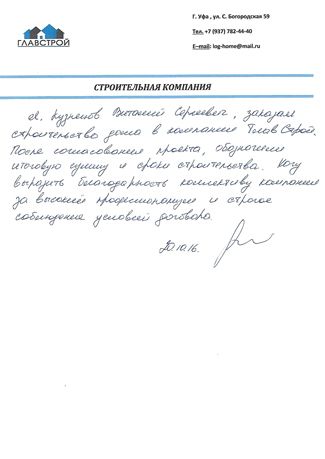 Г. Уфа , ул. С. Богородская 59
ГЛАВСТРОЙ
Тел. +7 (937) 782-44-40
E-mail: log-home@mail.ru
СТРОИТЕЛЬНАЯ КОМПАНИЯ
Я. Кузнецов Виталий Сергеевич, заказал
строительство дома в компании ГлавСтрой.
После согласования проекта, обозначили
итоговую сумму и сроки строительства. Хочу
выразить благодарность коллективу компании
за высокий профессионализм и строгое
соблюдение условий договора.
20.10.16.